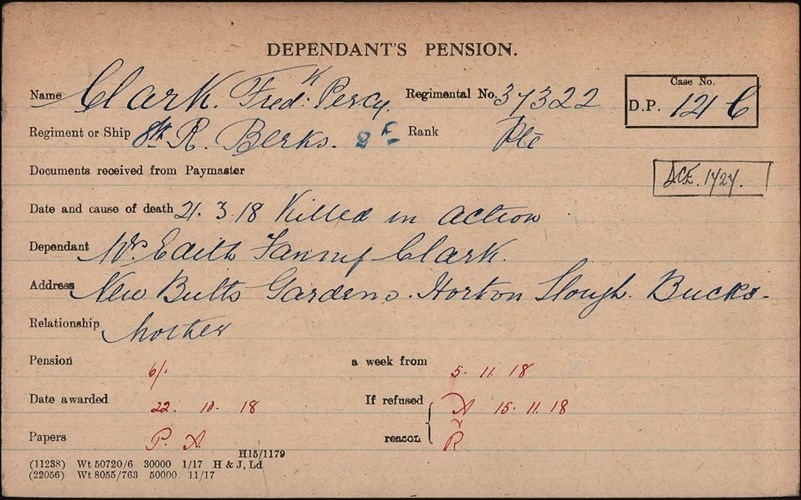 DEPENDANT'S PENSION.
Name Clark. Fredk: Percy. Regimental No. 37322
Case No.
D.P. 121 C
Regiment or Ship 8th R. Berks. Rank Pte
Documents received from Paymaster
DCE. 1724.
Date and cause of death 21. 3. 18 Killed in action
Dependant Mrs. Edith Fanny Clark.
Address New Butts Gardens. Horton Slough. Bucks.
Relationship Mother
Pension 6/. a week from 5. 11. 18
Date awarded 22. 10. 18 If refused A 15. 11. 18
Papers P. A. reason R
H15/1179
(11238) Wt 50720/6 30000 1/17 H & J, Ld
(22056) Wt 8055/763 50000 11/17